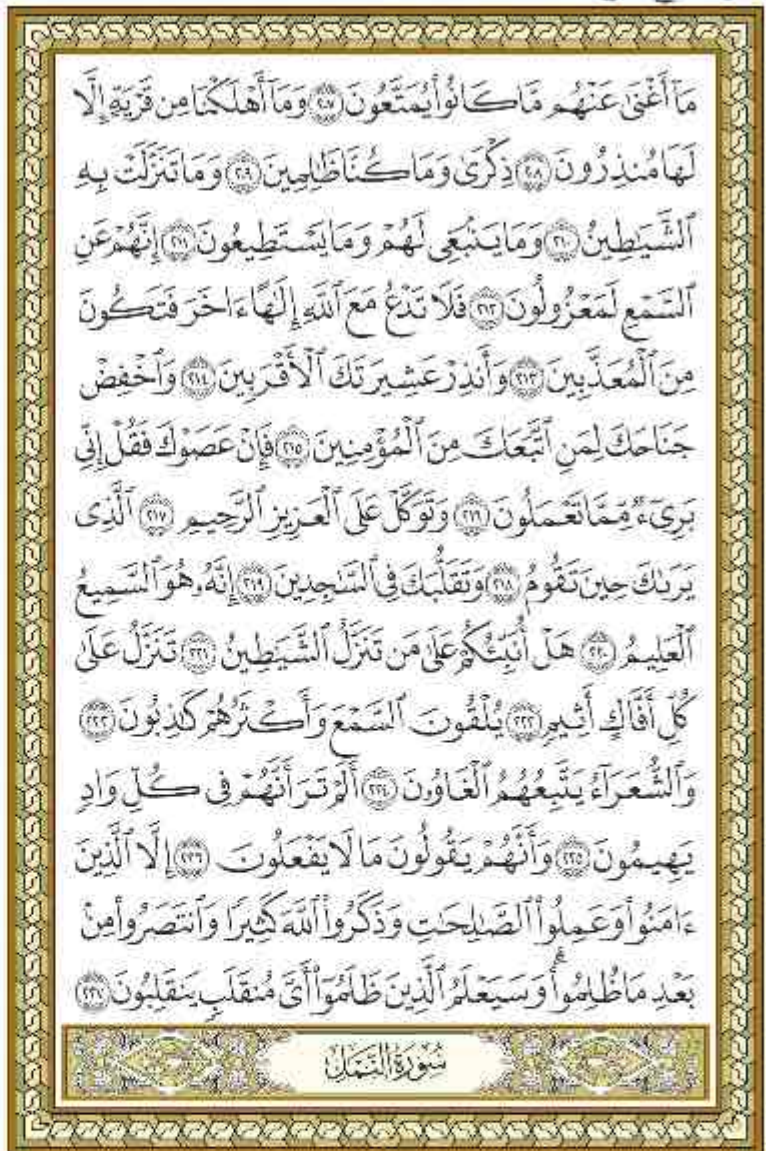 مَآ أَغْنَىٰ عَنْهُم مَّا كَانُوا۟ يُمَتَّعُونَ ٢٠٧ وَمَآ أَهْلَكْنَا مِن قَرْيَةٍ إِلَّا
لَهَا مُنذِرُونَ ٢٠٨ ذِكْرَىٰ وَمَا كُنَّا ظَٰلِمِينَ ٢٠٩ وَمَا تَنَزَّلَتْ بِهِ
ٱلشَّيَٰطِينُ ٢١٠ وَمَا يَنۢبَغِى لَهُمْ وَمَا يَسْتَطِيعُونَ ٢١١ إِنَّهُمْ عَنِ
ٱلسَّمْعِ لَمَعْزُولُونَ ٢١٢ فَلَا تَدْعُ مَعَ ٱللَّهِ إِلَٰهًا ءَاخَرَ فَتَكُونَ
مِنَ ٱلْمُعَذَّبِينَ ٢١٣ وَأَنذِرْ عَشِيرَتَكَ ٱلْأَقْرَبِينَ ٢١٤ وَٱخْفِضْ
جَنَاحَكَ لِمَنِ ٱتَّبَعَكَ مِنَ ٱلْمُؤْمِنِينَ ٢١٥ فَإِنْ عَصَوْكَ فَقُلْ إِنِّى
بَرِىٓءٌ مِّمَّا تَعْمَلُونَ ٢١٦ وَتَوَكَّلْ عَلَى ٱلْعَزِيزِ ٱلرَّحِيمِ ٢١٧ ٱلَّذِى
يَرَىٰكَ حِينَ تَقُومُ ٢١٨ وَتَقَلُّبَكَ فِى ٱلسَّٰجِدِينَ ٢١٩ إِنَّهُۥ هُوَ ٱلسَّمِيعُ
ٱلْعَلِيمُ ٢٢٠ هَلْ أُنَبِّئُكُمْ عَلَىٰ مَن تَنَزَّلُ ٱلشَّيَٰطِينُ ٢٢١ تَنَزَّلُ عَلَىٰ
كُلِّ أَفَّاكٍ أَثِيمٍ ٢٢٢ يُلْقُونَ ٱلسَّمْعَ وَأَكْثَرُهُمْ كَٰذِبُونَ ٢٢٣
وَٱلشُّعَرَآءُ يَتَّبِعُهُمُ ٱلْغَاوُۥنَ ٢٢٤ أَلَمْ تَرَ أَنَّهُمْ فِى كُلِّ وَادٍ
يَهِيمُونَ ٢٢٥ وَأَنَّهُمْ يَقُولُونَ مَا لَا يَفْعَلُونَ ٢٢٦ إِلَّا ٱلَّذِينَ
ءَامَنُوا۟ وَعَمِلُوا۟ ٱلصَّٰلِحَٰتِ وَذَكَرُوا۟ ٱللَّهَ كَثِيرًا وَٱنتَصَرُوا۟ مِنۢ
بَعْدِ مَا ظُلِمُوا۟ ۗ وَسَيَعْلَمُ ٱلَّذِينَ ظَلَمُوٓا۟ أَىَّ مُنقَلَبٍ يَنقَلِبُونَ ٢٢٧
سُورَةُ النَّمْلِ